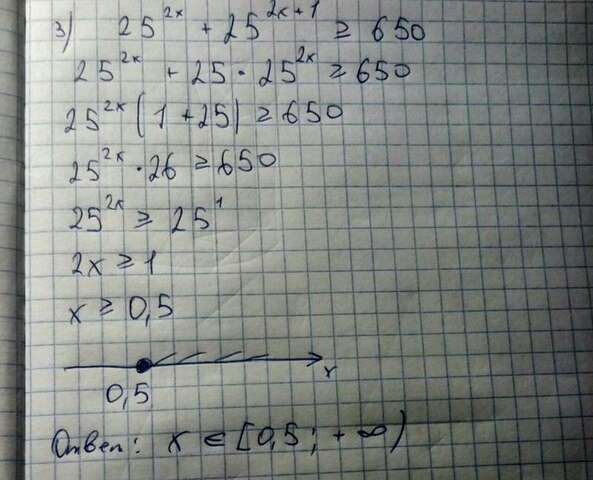 3) 25^{2x} + 25^{2x+1} ≥ 650
25^{2x} + 25 · 25^{2x} ≥ 650
25^{2x} (1 + 25) ≥ 650
25^{2x} · 26 ≥ 650
25^{2x} ≥ 25^1
2x ≥ 1
x ≥ 0,5
x
0,5
Ответ: x ∈ [0,5 ; + ∞)